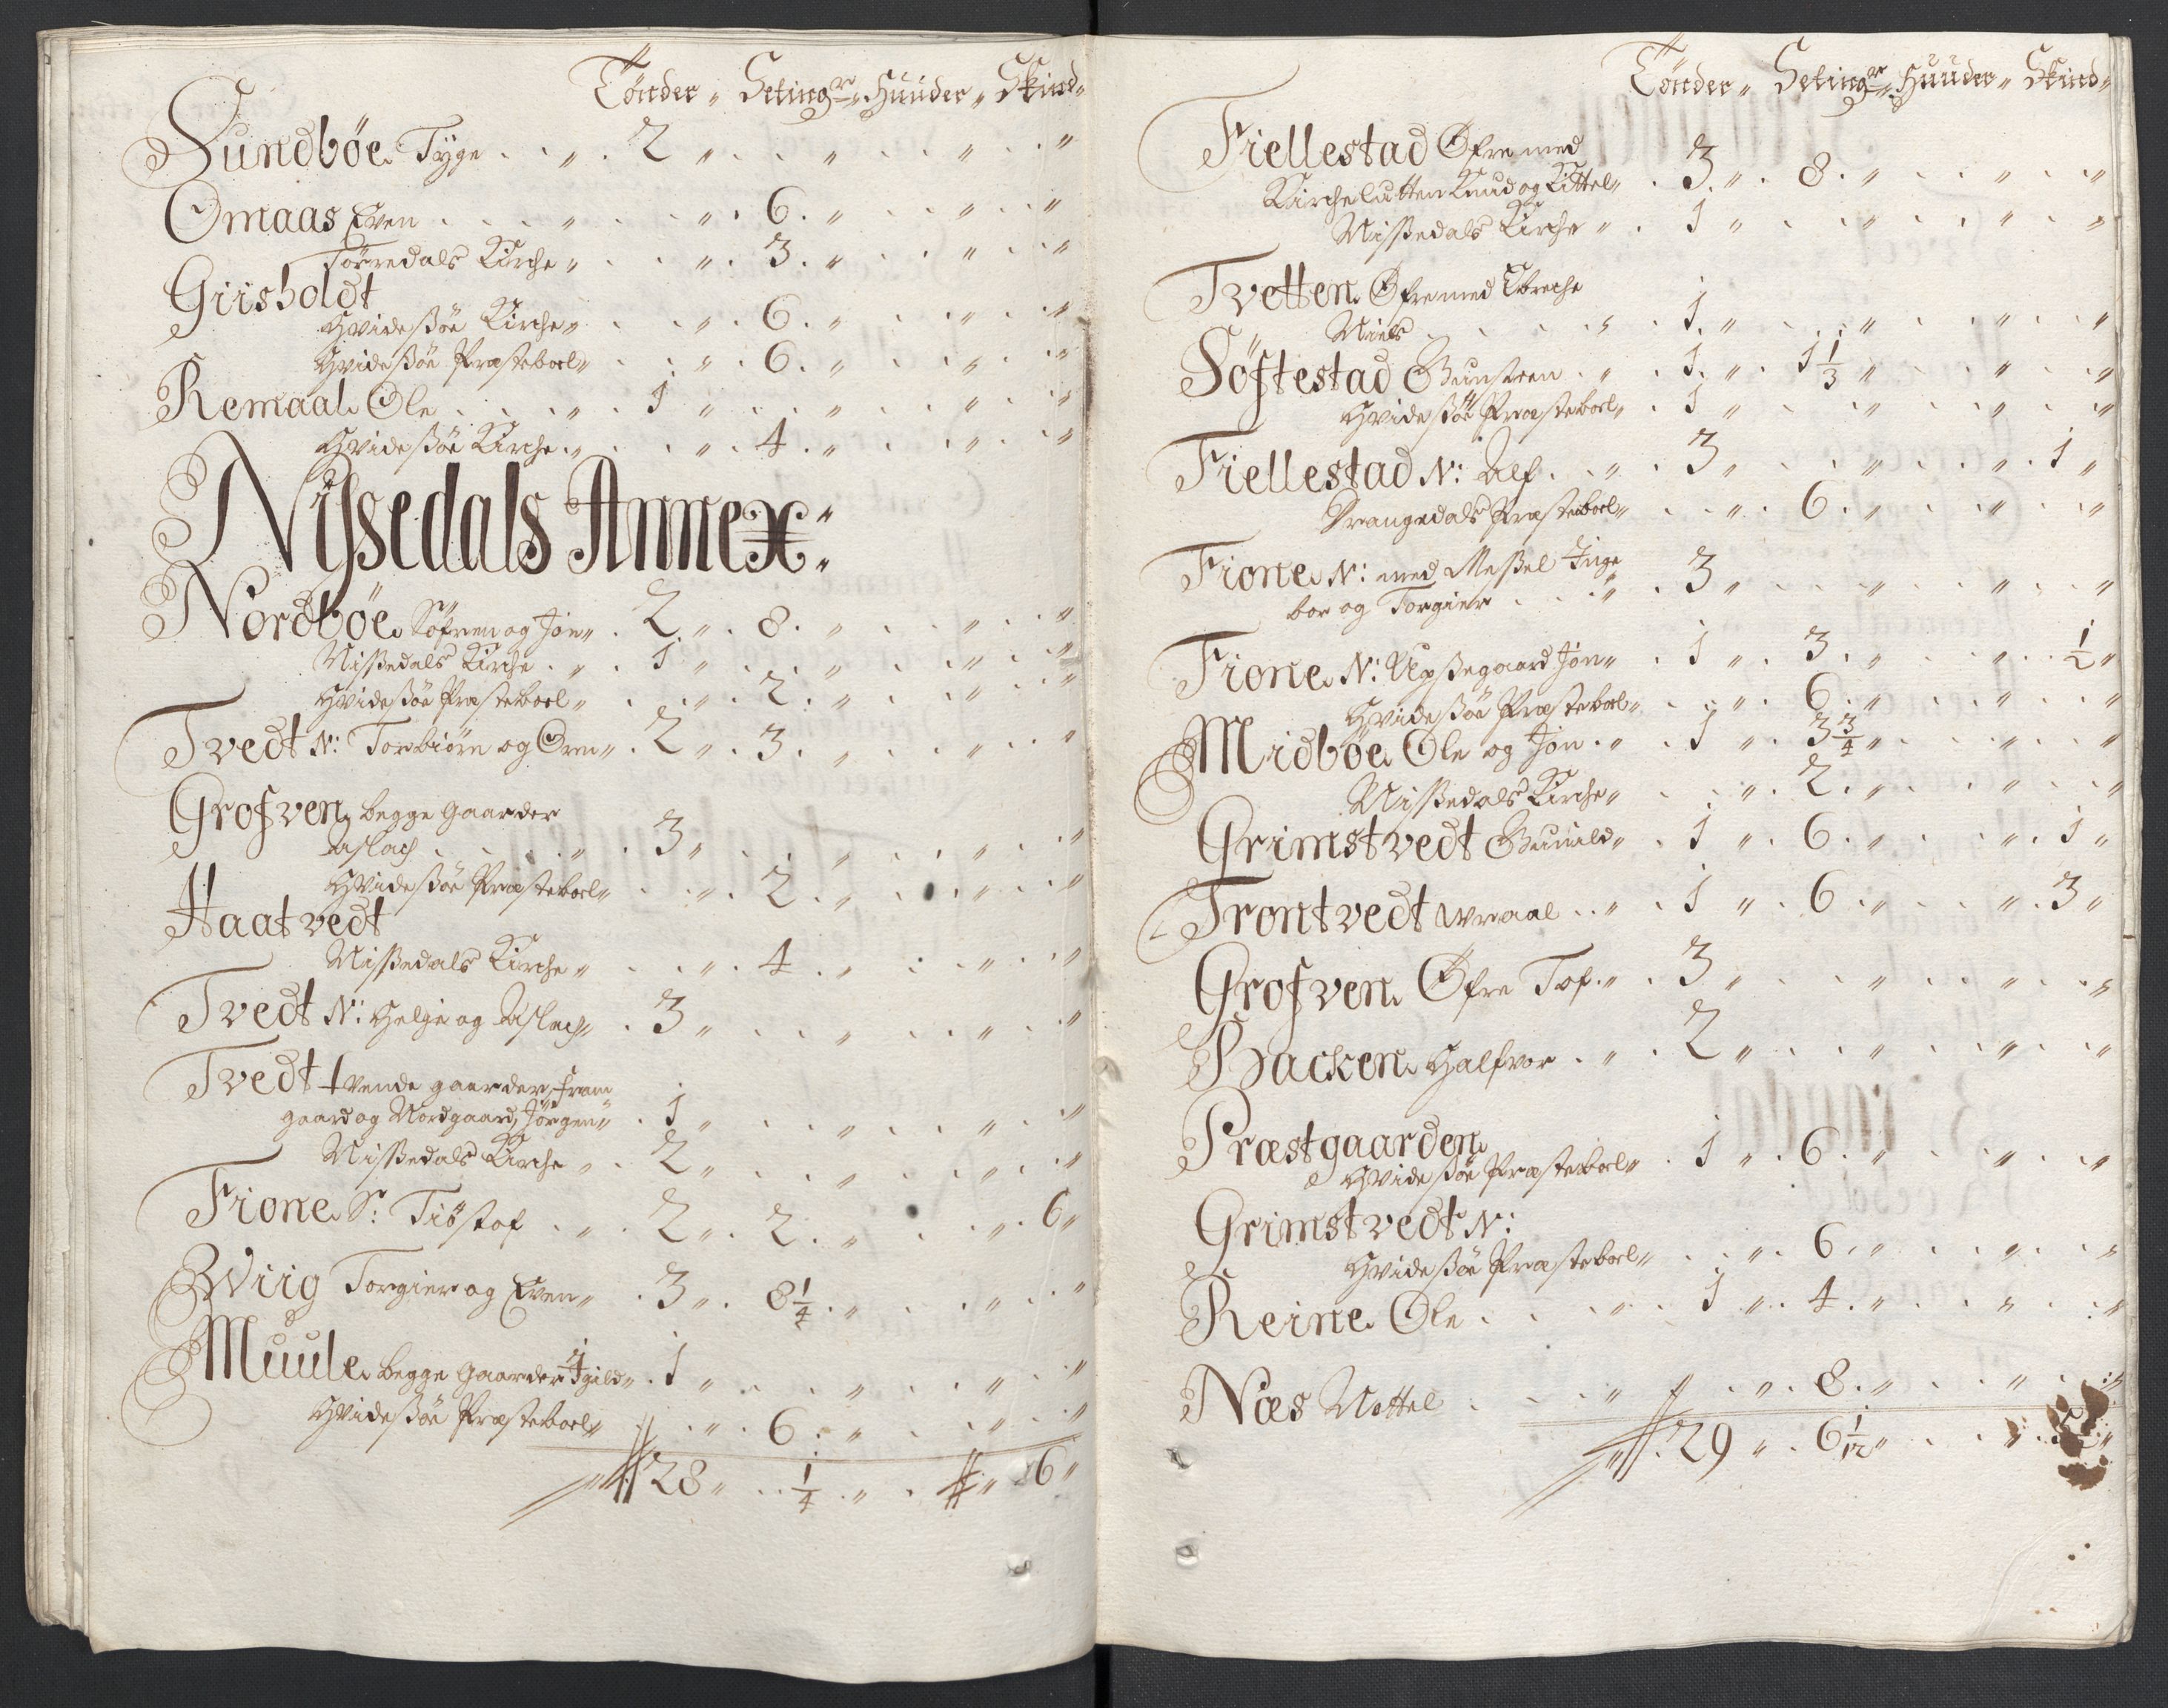 Tönder „ Setingr „ Huuder „ Skind „
Sundböe Tyge . . „ . 2 „ . . „ . . „ . . „
Omaas Even . . . „ . . „ . 6 . „ . . „ . . „
Törredals Kirche „ . . „ . 3 . „ . . „ . . „
Griisholdt
Hvidesßöe Kirche „ . . „ . 6 . „ . . „ . . „
Hvidesßöe Præsteboel „ . . „ . 6 . „ . . „ . . „
Remaal Ole . . . „ . 1 „ . . „ . . „ . . „
Hvidesßöe Kirche . „ . . „ . 4 . „ . . „ . . „
Nissedals Annex :
Nordböe Söfren og Jon „ . 2 „ . 8 . „ . . „ . . „
Nisßedals Kirche . „ . 1 „ . . „ . . „ . . „
Hvidesßöe Præsteboel „ . . „ . 2 . „ . . „ . . „
Tvedt N: Torbiörn og Orm „ . 2 „ . 3 . „ . . „ . . „
Grofven begge Gaarder
Aslach . . . „ . 3 „ . . „ . . „ . . „
Hvidesßöe Præsteboel „ . . „ . 2 . „ . . „ . . „
Haatvedt
Nisßedals Kirche „ . . „ . 4 . „ . . „ . . „
Tvedt N: Helge og Aslach „ . 3 „ . . „ . . „ . . „
Tvedt tvende gaarder, fram
gaard og Nordgaard, Jörgen „ . 1 „ . . „ . . „ . . „
Nisßedals Kirche „ . 2 „ . . „ . . „ . . „
Fione S: Tiöstof . . „ . 2 „ . 2 . „ . . „ . 6 „
Wiig Torgier og Even „ . 3 „ . 8 1/4 . „ . . „ . . „
Muule begge Gaarder Igild „ . 1 „ . . „ . . „ . . „
Hvidesßöe Præsteboel „ . . „ . 6 . „ . . „ . . „
„ 28 „ . . 1/4 . „ . „ 6 „
Tönder „ Setingr „ Huuder „ Skind „
Fiellestad Øfre med
Kirchelutten Knud og Kittel „ . 3 . „ . 8 . „ . . „ . . „
Nisßedals Kirche „ . 1 „ . . „ . . „ . . „
Tvetten Øfre med
Niels . . . „ . 1 . „ . . „ . . „ . . „
Söftestad . „ . 1 . „ . 1 1/3 „ . . „ . . „
Hvidesßöe Præsteboel „ . 1 „ . . „ . . „ . . „
Fiellestad N: Alf . . „ . 3 „ . . „ . . „ . 1 „
Drangedals Præsteboel „ . . „ . 6 . „ . . „ . . „
Fione N: med Mesßel Inge
bor og Torgier . . „ . 3 „ . . „ . . „ . . „
Fione N: Upsßegaard Jon „ . 1 „ . 3 . „ . . „ . . 1/2 „
Hvidesßöe Præsteboel „ . . „ . 6 . „ . . „ . . „
Midböe Ole og Jon . „ . 1 „ . 3 3/4 „ . . „ . . „
Nisßedals Kirche „ . . „ . 2 . „ . . „ . . „
Grimstvedt Gunild „ . 1 „ . 6 . „ . . „ . 1 „
Trontvedt Wraal . . „ . 1 „ . 6 . „ . . „ . 3 „
Grofven Øfre Tof . „ . 3 „ . . „ . . „ . . „
Backen Halfvor . „ . 2 „ . . „ . . „ . . „
Præstgaarden
Hvidesßöe Præsteboel „ . 1 „ . 6 . „ . . „ . . „
Grimstvedt N:
Hvidesßöe Præsteboel „ . . „ . 6 . „ . . „ . . „
Reine Ole . . . „ . 1 „ . 4 . „ . . „ . . „
Næs Nottel . . . „ „ . „ . 8 . „ . . „ . . „
„ 29 „ . 6 1/12 „ . . „